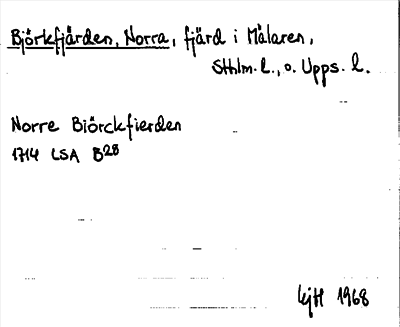 Björkfjärden, Norra, fjärd i Mälaren,
Sthlm. l., o. Upps. l.
Norre Biörckfierden
1714 LSA B28
1968